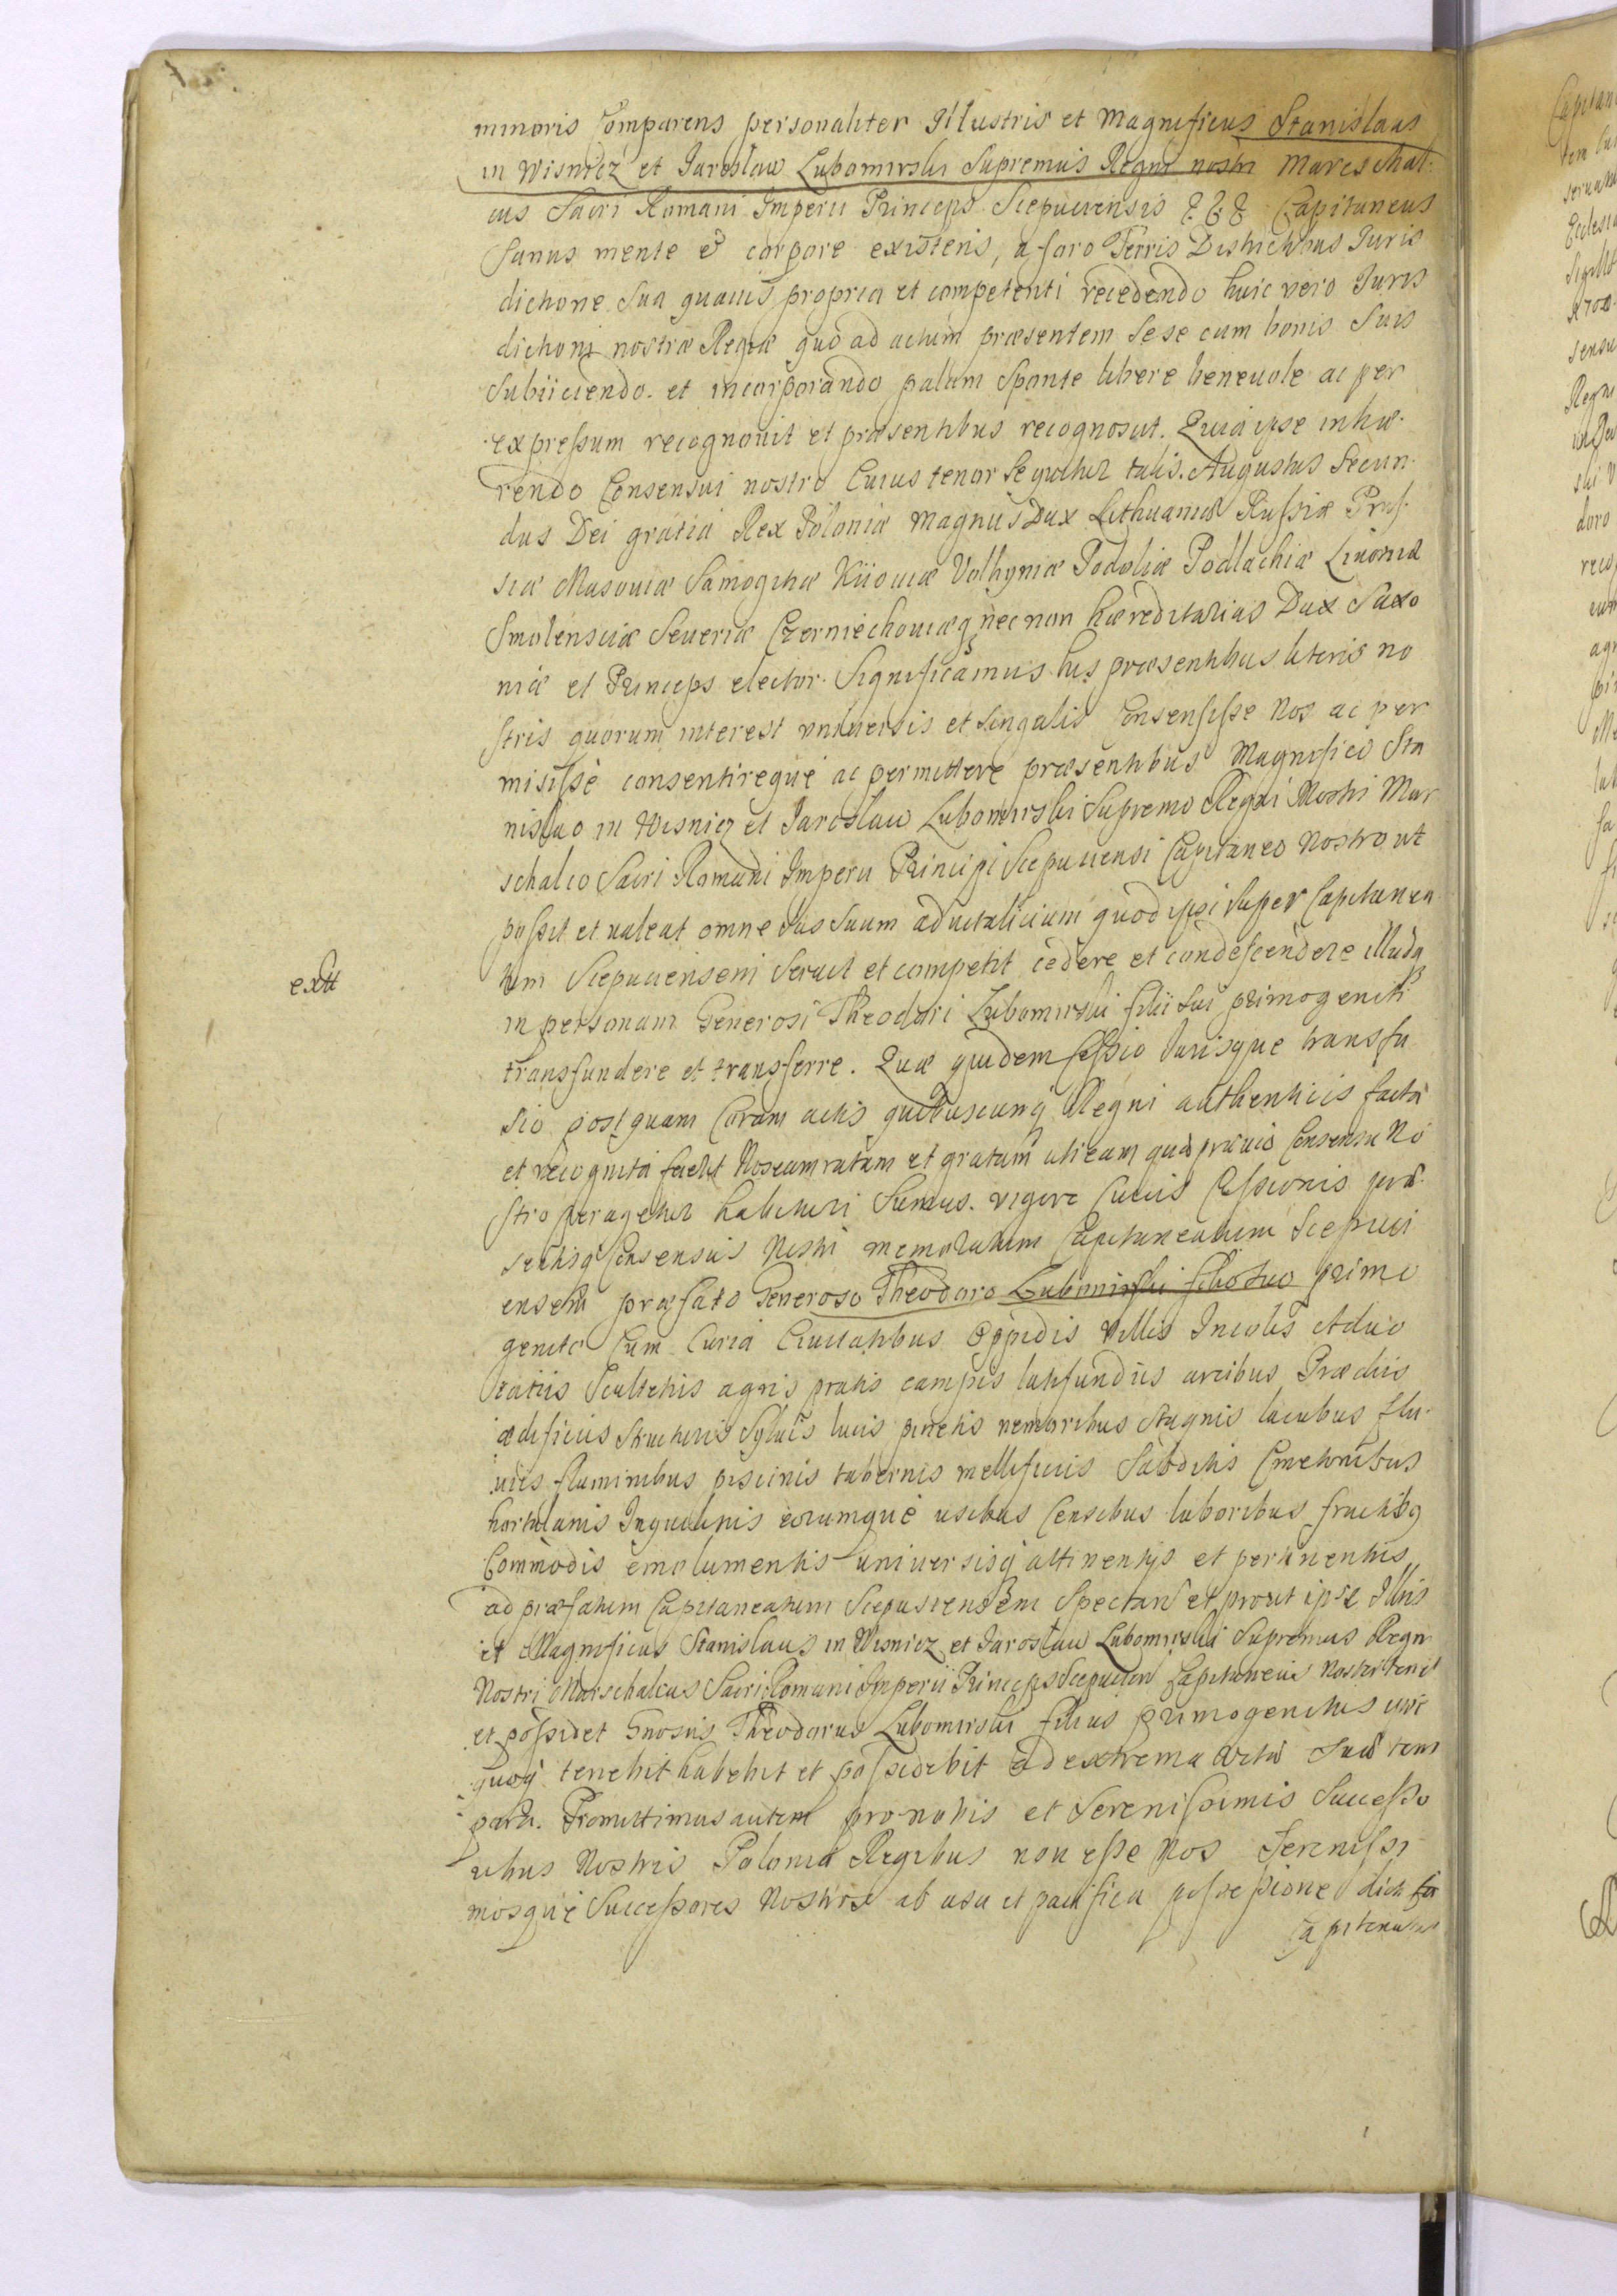 minoris Comparens personaliter Illustris et Magnificus Stanislaus
in Wisnicz et Jaroslaw Lubomirski Supremus Regni nostri Mareschal-
cus Sacri Romani Imperii Princeps Scepusiensis & & & Capitaneus
Sanus mente et corpore existens, a foro Terris Districtibus Juris
dictione sua quavis propria et competenti recedendo huic vero Juris
dictioni nostræ Regiæ quo ad actum præsentem Sese cum bonis Suis
Subiiciendo et incorporando palam Sponte libere benevole ac per
expressum recognovit et præsentibus recognoscit. Quia ipse inhæ-
rendo Consensui nostro Cuius tenor Sequitur talis. Augustus Secun-
dus Dei gratia Rex Poloniæ Magnus Dux Lithuaniæ Russiæ Prus-
siæ Masoviæ Samogitiæ Kiioviæ Volhyniæ Podoliæ Podlachiæ Livoniæ
Smolensciæ Severiæ Czerniechoviæq necnon hæreditarius Dux Saxo
niæ et Princeps elector. Significamus his præsentibus literis no
stris quorum interest universis et singulis Consensisse Nos ac per
misisse consentireque ac permittere præsentibus Magnifico Sta
nislao in Wisnicz et Jaroslaw Lubomirski Supremo Regni Nostri Mar
schalco Sacri Romani Imperii Principi Scepusiensi Capitaneo Nostro ut
possit et valeat omne Jus Suum advitalicium quod ipsi super Capitanea
tum Scepusiensem Servit et competit cedere et condescendere illudq
in personam Generosi Theodori Lubomirski filii sui primogeniti
transfundere et transferre. Quæ quidem Cessio Jurisque transfu
sio postquam Coram actis quibuscunq Regni authenticis facta
et recognita fuerit Nos eam ratam et gratam uti eam quæ prævio Consensu No
stro peragetur habituri Sumus. vigore Cuius Cessionis præ-
sentisq Consensus Nostri memoratum Capitaneatum Scepusi
ensem præfato Generoso Theodoro Lubomirski filio suo primo
genito Cum Curia Civitatibus Oppidis Villis Incolis Advo
catiis Scultetiis agris pratis campis latifundiis arcibus Prædiis
ædificiis Structuris Sylvis lucis pinetis nemoribus Stagnis lacubus flu-
viis fluminibus piscinis tabernis mellificiis Subditis Cmetonibus
hortulanis Inquilinis eorumque usibus Censibus laboribus fructibg
Commodis emolumentis universisq attinentys et pertinentiis
ad præfatum Capitaneatum Scepusiensem Spectan et prout ipse Illris
et Magnificus Stanislaus in Wisnicz et Jaroslaw Lubomirski Supremus Regni
Nostri Marschalcus Sacri Romani Imperii Princeps Scepusien Capitaneus Noster tenet
et possidet Gnosus Theodorus Lubomirski filius primogenitus
quoq tenebit habebit et possidebit ad extrema vitæ suæ tem
pora. Promittimus autem pro nobis et Serenissimis Successo
ribus Nostris Poloniæ Regibus non esse Nos Serenissi
mosque Successores Nostros ab usu et pacifica possessione dicti
Capitaneatus
extt